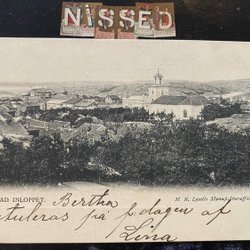 NISSED
AD. INLOPPET.
M. N. Lysells Manuf.
Bertha
tuleras på dagen af
Lina